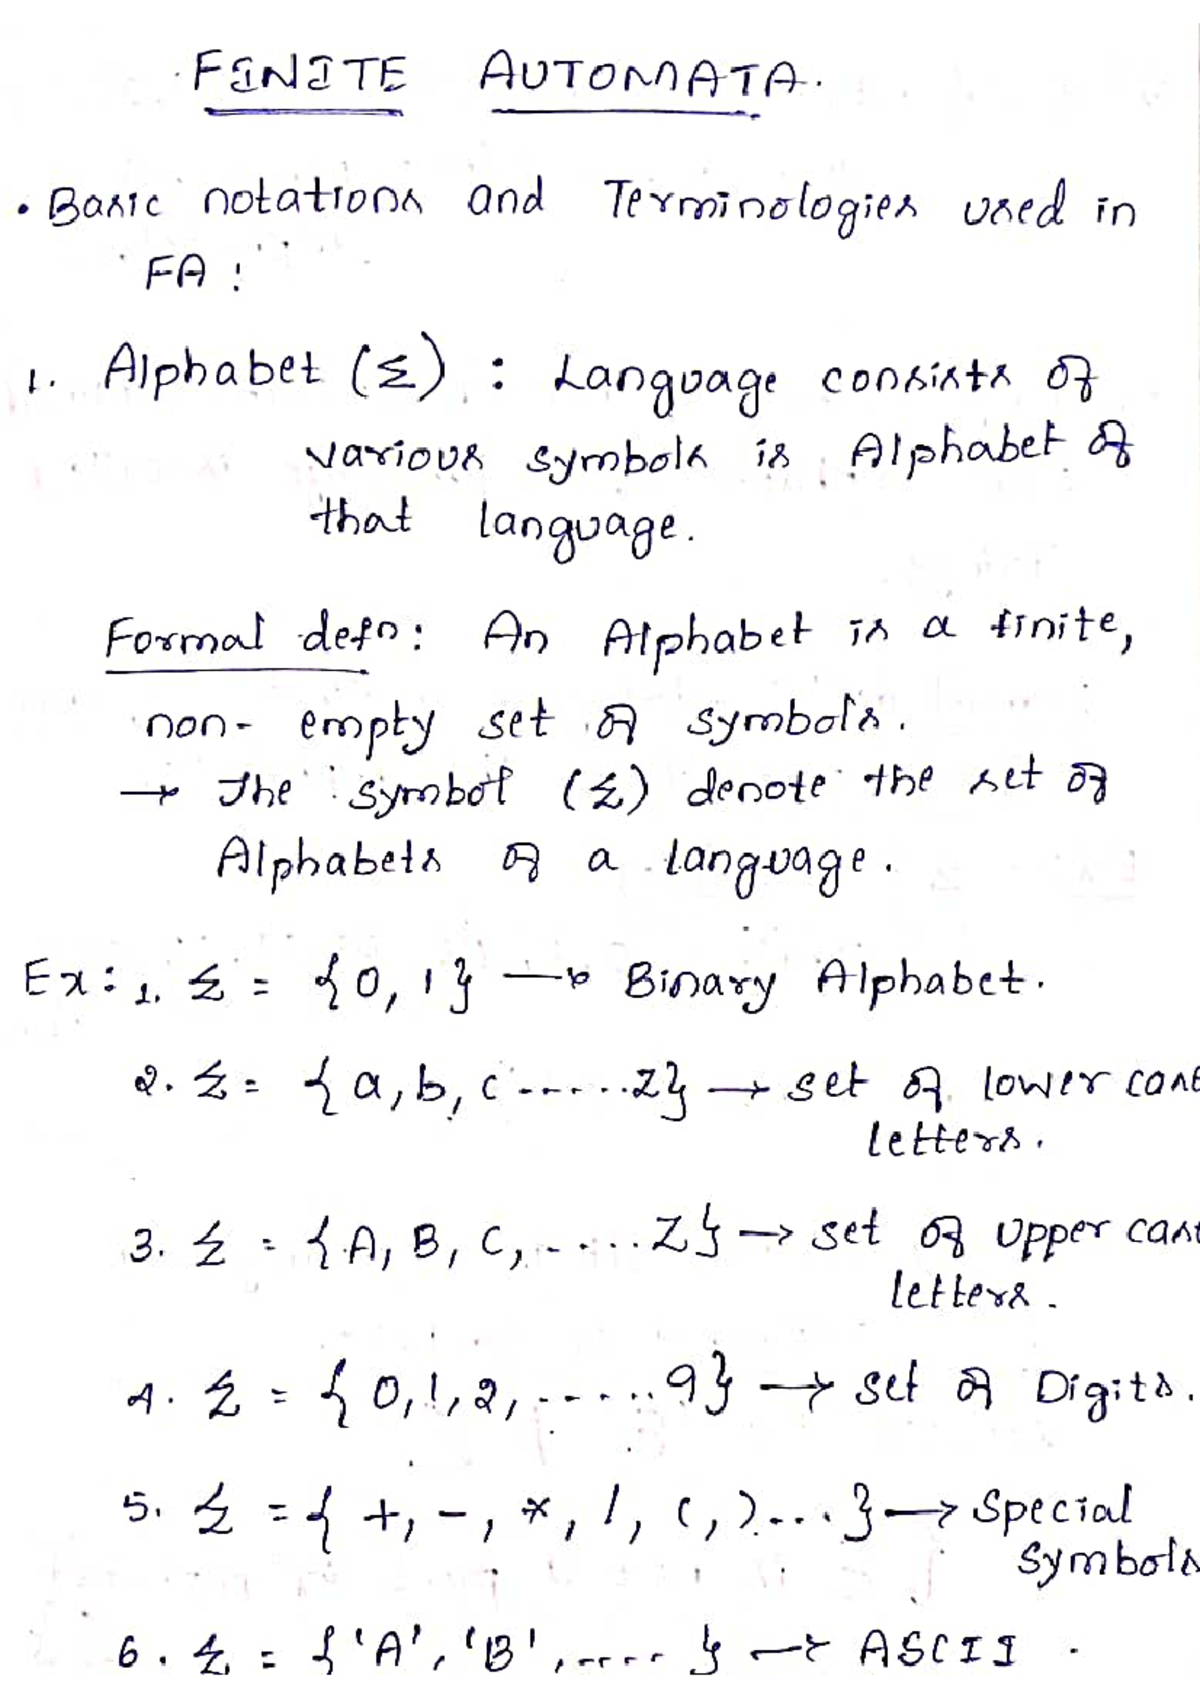 FINITE AUTOMATA.
• Basic notations and Terminologies used in
FA :
1. Alphabet (Σ) : Language consists of
various symbols is Alphabet of
that language.
Formal defn: An Alphabet is a finite,
non- empty set of symbols.
→ The symbol (Σ) denote the set of
Alphabets of a language.
Ex: 1. Σ = {0, 1} → Binary Alphabet.
2. Σ = {a, b, c ......z} → set of lower case
letters.
3. Σ = {A, B, C, .....Z} → set of Upper case
letters.
4. Σ = {0, 1, 2, ......9} → set of Digits.
5. Σ = { +, -, *, /, (, )....} → Special
Symbols
6. Σ = {'A', 'B', ..... } → ASCII .